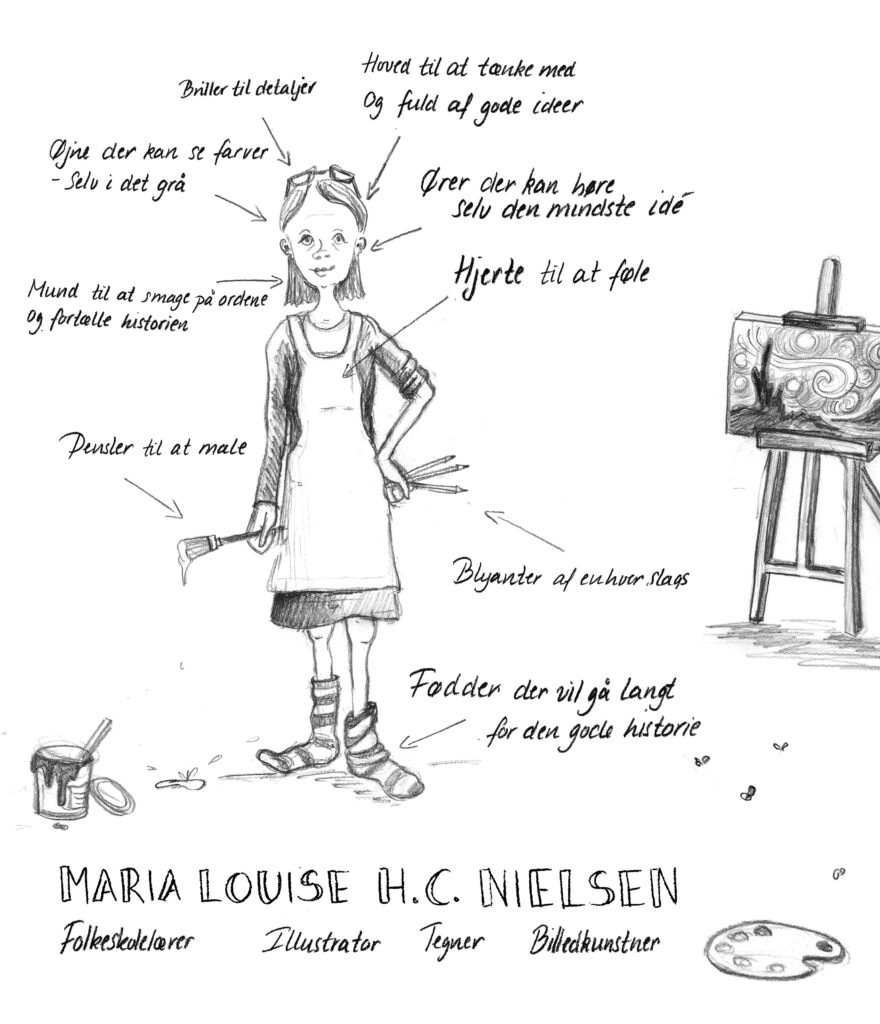 Briller til detaljer
Hoved til at tænke med
og fuld af gode ideer
Øjne der kan se farver
- selv i det grå
Ører der kan høre
selv den mindste idé
Hjerte til at føle
Mund til at smage på ordene
og fortælle historien
Pensler til at male
Blyanter af enhver slags
Fødder der vil gå langt
for den gode historie
MARIA LOUISE H.C. NIELSEN
Folkeskolelærer Illustrator Tegner Billedkunstner